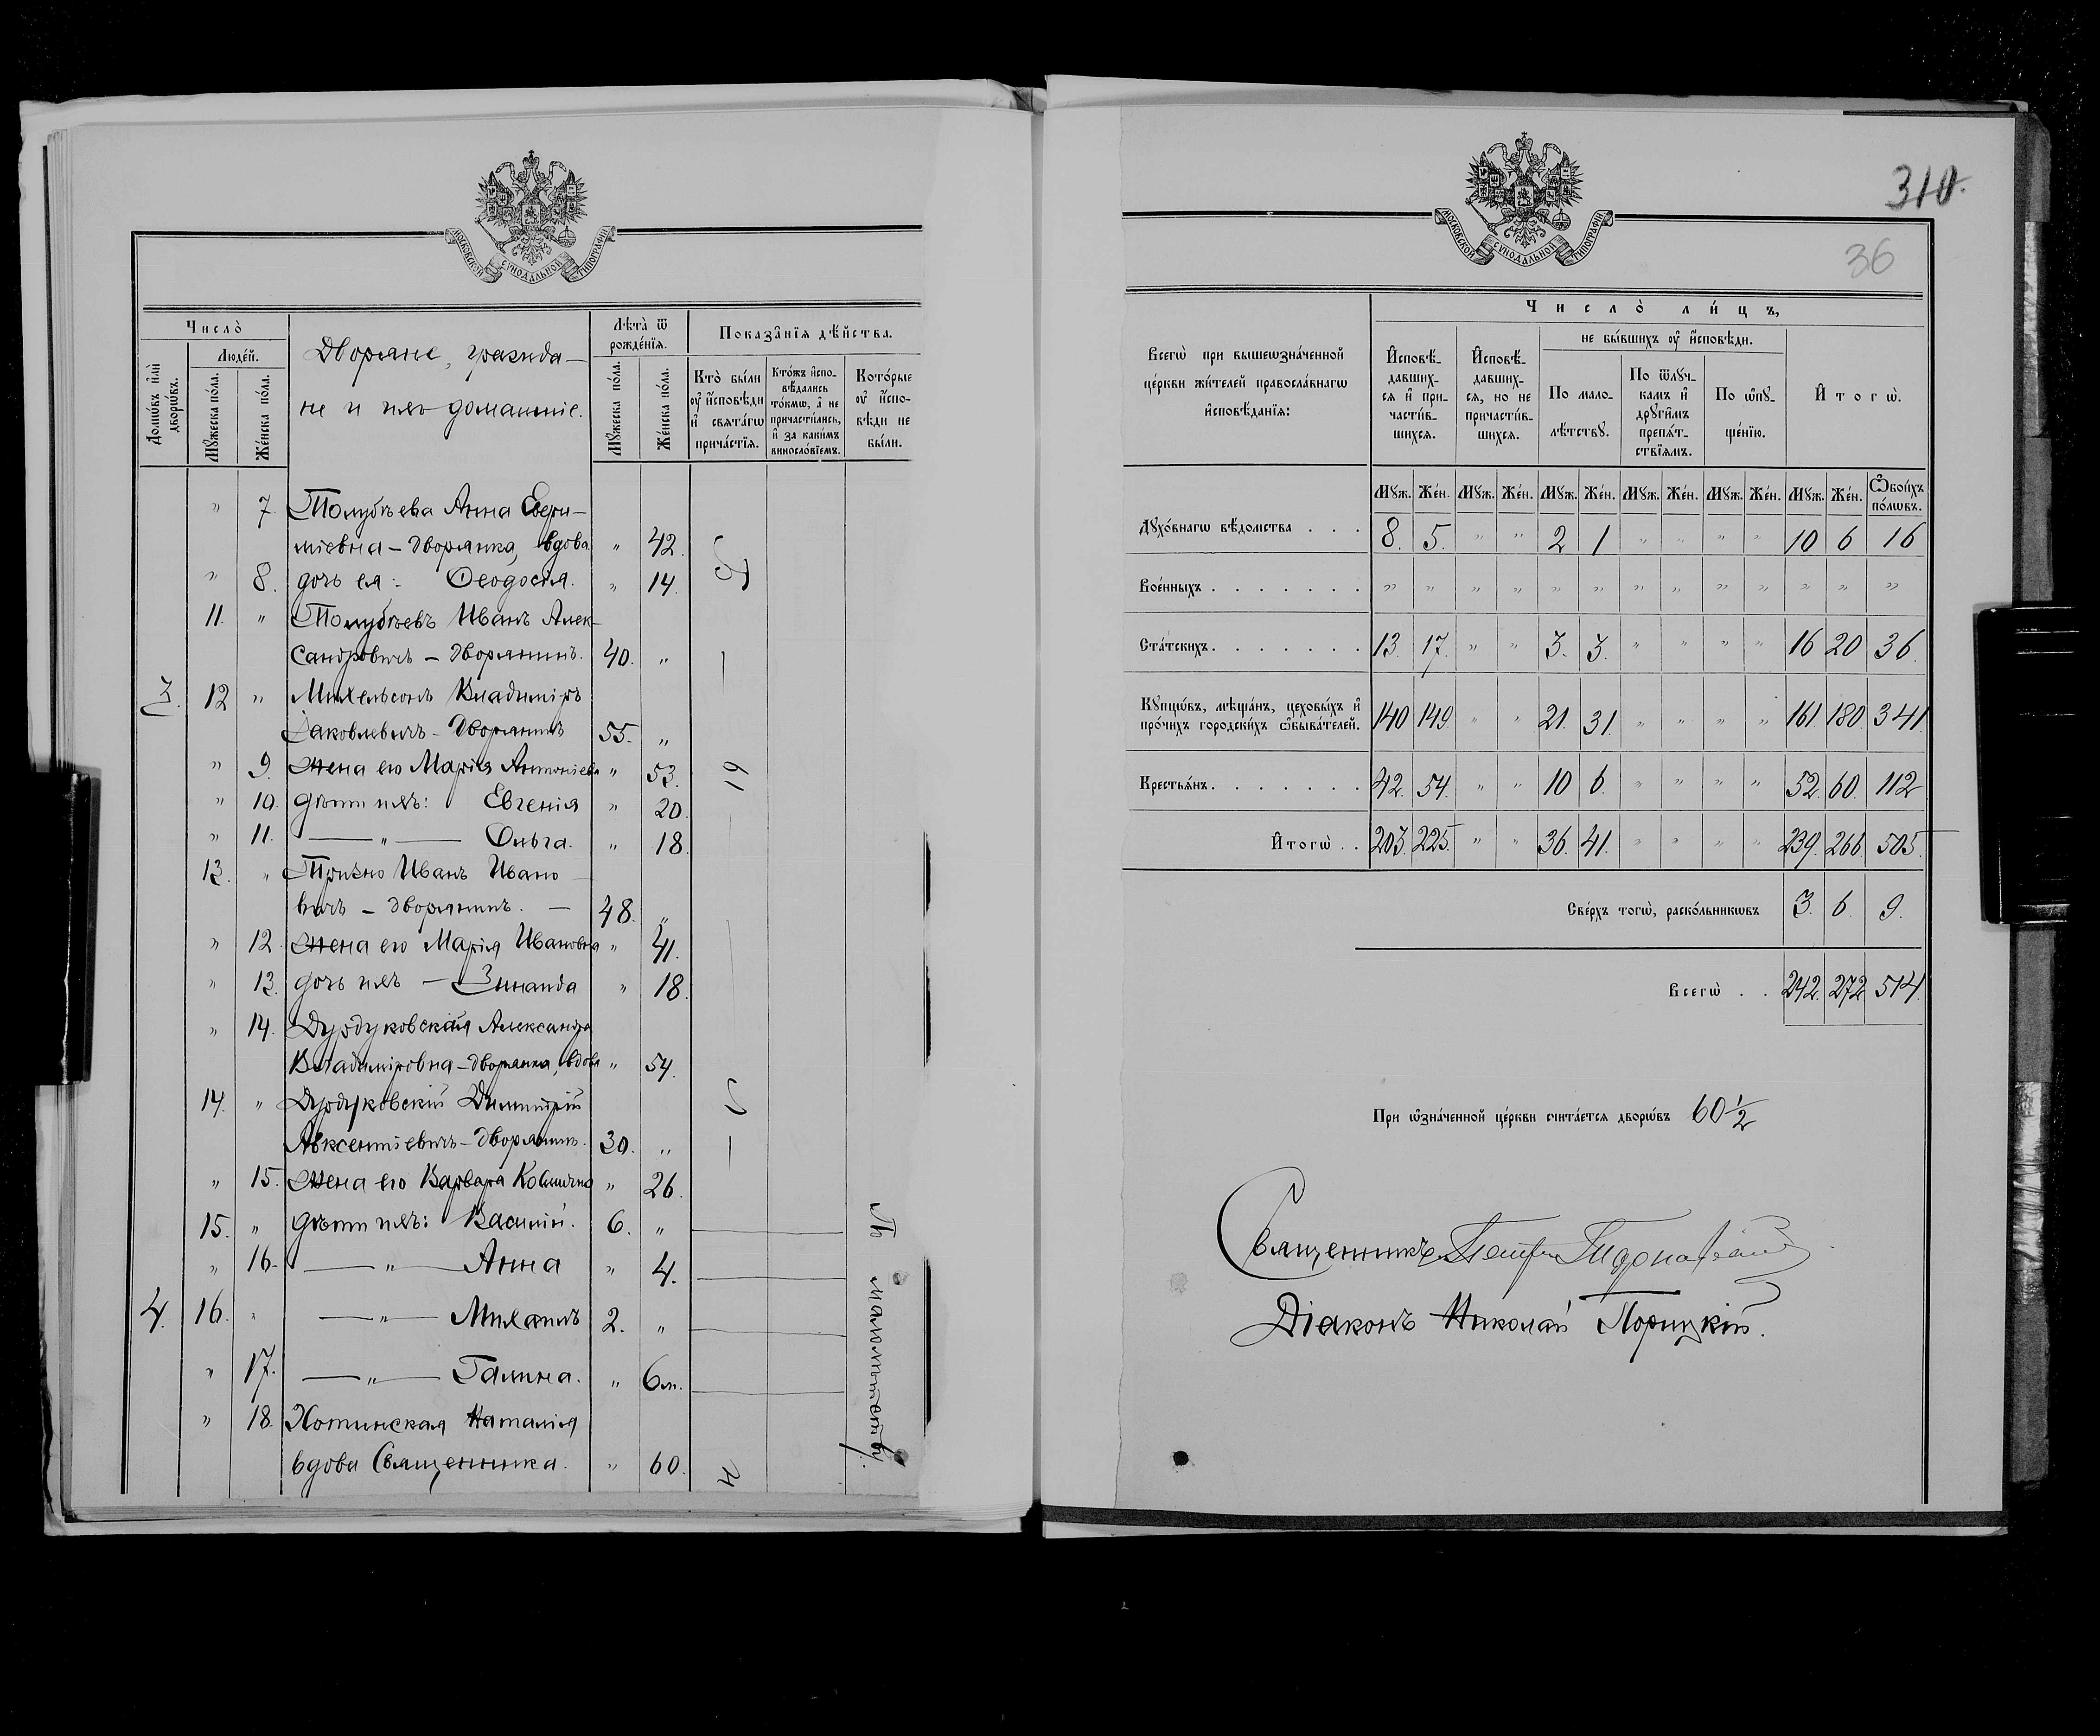 МОСКОВСКОЙ СУНОДАЛЬНОЙ ТИПОГРАФІИ
Число̀
Домѡ́въ и҆лѝ дворѡ́въ.
Люде́й.
Мꙋ́жеска по́ла.
Же́нска по́ла.
Дворяне, гражда-
не и ихъ домашніе.
Лѣ́та ѿ рожде́нїѧ.
Мꙋ́жеска по́ла.
Же́нска по́ла.
Показа̑нїѧ дѣ́йства.
Кто̀ бы́ли ᲂу҆ и҆сповѣди и҆ свѧта́гѡ прича́стїѧ.
Кто́жъ и҆спо-вѣ́дались то́кмѡ, а҆ не причасти́лись, и҆ за каки́мъ винослов́їемъ.
Кото́рые ᲂу҆ и҆спо-вѣди не бы́ли.
" 7. Толубѣева Анна Евфи-
міевна - дворянка, вдова " 42.
" 8. дочь ея: Ѳеодосія. " 14.
11. " Толубѣевъ Иванъ Алек-
сандровичъ - дворянинъ. 40. "
3. 12 " Михельсонъ Владиміръ
Яковлевичъ - дворянинъ 55. "
" 9. жена его Марія Антоніева " 53. 19
" 10. дѣти ихъ: Евгенія " 20.
" 11. — " — Ольга. " 18.
13. " Тризно Иванъ Ивано-
вичъ - дворянинъ. — 48. "
" 12 жена его Марія Ивановна " 41.
" 13. дочь ихъ - Зинаида " 18.
" 14. Дурдуковская Александра
Владиміровна - дворянка, вдова " 54.
14. " Дурдуковскій Димитрій
Авксентіевичъ - дворянинъ. 30. "
" 15. жена его Варвара " 26.
15. " дѣти ихъ: Василій. 6. "
" 16. — " — Анна " 4.
4. 16. " — " — Михаилъ 2. "
" 17. — " — Галина. " 6 м.
" 18. Хотинская Наталія
вдова Священника. " 60.
По малолѣтству.
МОСКОВСКОЙ СУНОДАЛЬНОЙ ТИПОГРАФІИ
310.
36
Всегѡ̀ при вышеѡзна́ченной це́ркви жи́телей правосла́внагѡ и҆сповѣ́данїѧ:
Число̀ ли́цъ,
И҆сповѣ́-давших-сѧ и҆ при-части́в-шихсѧ.
И҆сповѣ́-давших-сѧ, но не причасти́в-шихсѧ.
не бы́вшихъ ᲂу҆ и҆сповѣди.
По мало-лѣ́тствꙋ.
По ѿлꙋ́ч-камъ и҆ дрꙋги̑мъ препѧ́т-ствїѧмъ.
По ѡ҆пꙋ-ще́нїю.
И҆тогѡ̀.
Мꙋж. Же́н. Мꙋж. Же́н. Мꙋж. Же́н. Мꙋж. Же́н. Мꙋж. Же́н. Мꙋж. Же́н. Ѻ҆бои́хъ по́лѡвъ.
Дꙋхо́внагѡ вѣ́домства . . . 8. 5. " " 2 1 " " " " 10 6 16
Вое́нныхъ . . . . . . . " " " " " " " " " " " " "
Ста́тскихъ . . . . . . . 13. 17. " " 3. 3. " " " " 16 20 36.
Кꙋпцѡ́въ, мѣща́нъ, цеховы́хъ и҆
про́чихъ городски́хъ ѡ҆быва́телей. 140 149. " " 21. 31. " " " " 161. 180. 341.
Крестьѧ́нъ . . . . . . . 42. 54. " " 10 6. " " " " 52. 60. 112
И҆тогѡ̀ . . 203. 225. " " 36. 41. " " " " 239. 266. 505.
Све́рхъ тогѡ̀, раско́льникѡвъ 3. 6. 9.
Всегѡ̀ . . 242. 272. 514.
При ѡ҆зна́ченной це́ркви счита́етсѧ дворѡ́въ 60 1/2
Священникъ Петръ
Діаконъ Николай Порицкій.